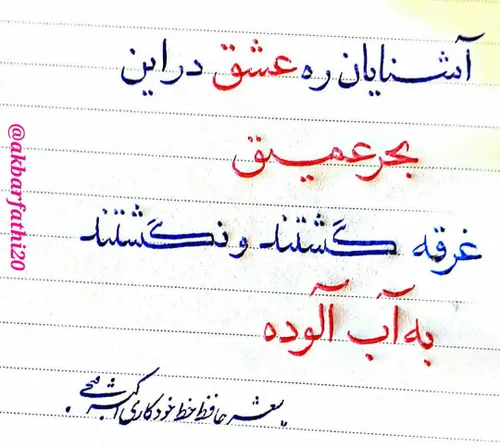 آشنایان ره عشق در این
بحر عمیق
غرقه گشتند و نگشتند
به آب آلوده
شعر حافظ خط خودکاری اکبر فتحی
@akbarfathi20